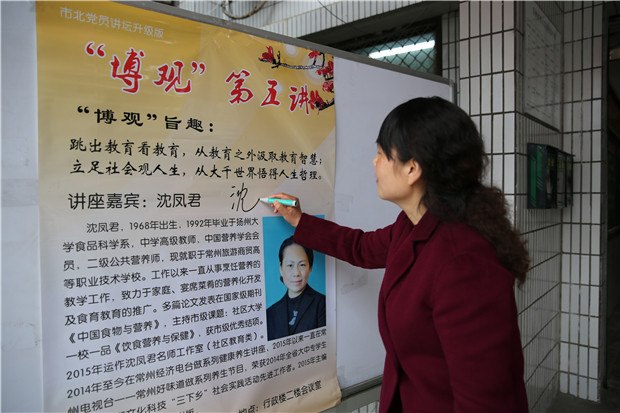 市北党员讲坛升级版
“博观”第五讲
“博观”旨趣：
跳出教育看教育，从教育之外汲取教育智慧；
立足社会观人生，从大千世界悟得人生哲理。
讲座嘉宾：沈凤君
沈
沈凤君，1968年出生，1992年毕业于扬州大
学食品科学系，中学高级教师，中国营养学会会
员，二级公共营养师，现就职于常州旅游商贸高
等职业技术学校。工作以来一直从事烹饪营养的
教学工作，致力于家庭、宴席菜肴的营养化开发
及食育教育的推广。多篇论文发表在国家级期刊
《中国食物与营养》，主持市级课题：社区大学
一校一品《饮食营养与保健》，获市级优秀结项。
2015年运作沈凤君名师工作室（社区教育类）。
2014年至今在常州经济电台做系列健康养生讲座，2015年以来一直在常
州电视台一一常州好味道做系列养生节目，荣获2014年全省大中专学生
文化科技“三下乡”社会实践活动先进工作者。2015年主编
地点：行政楼二楼会议室